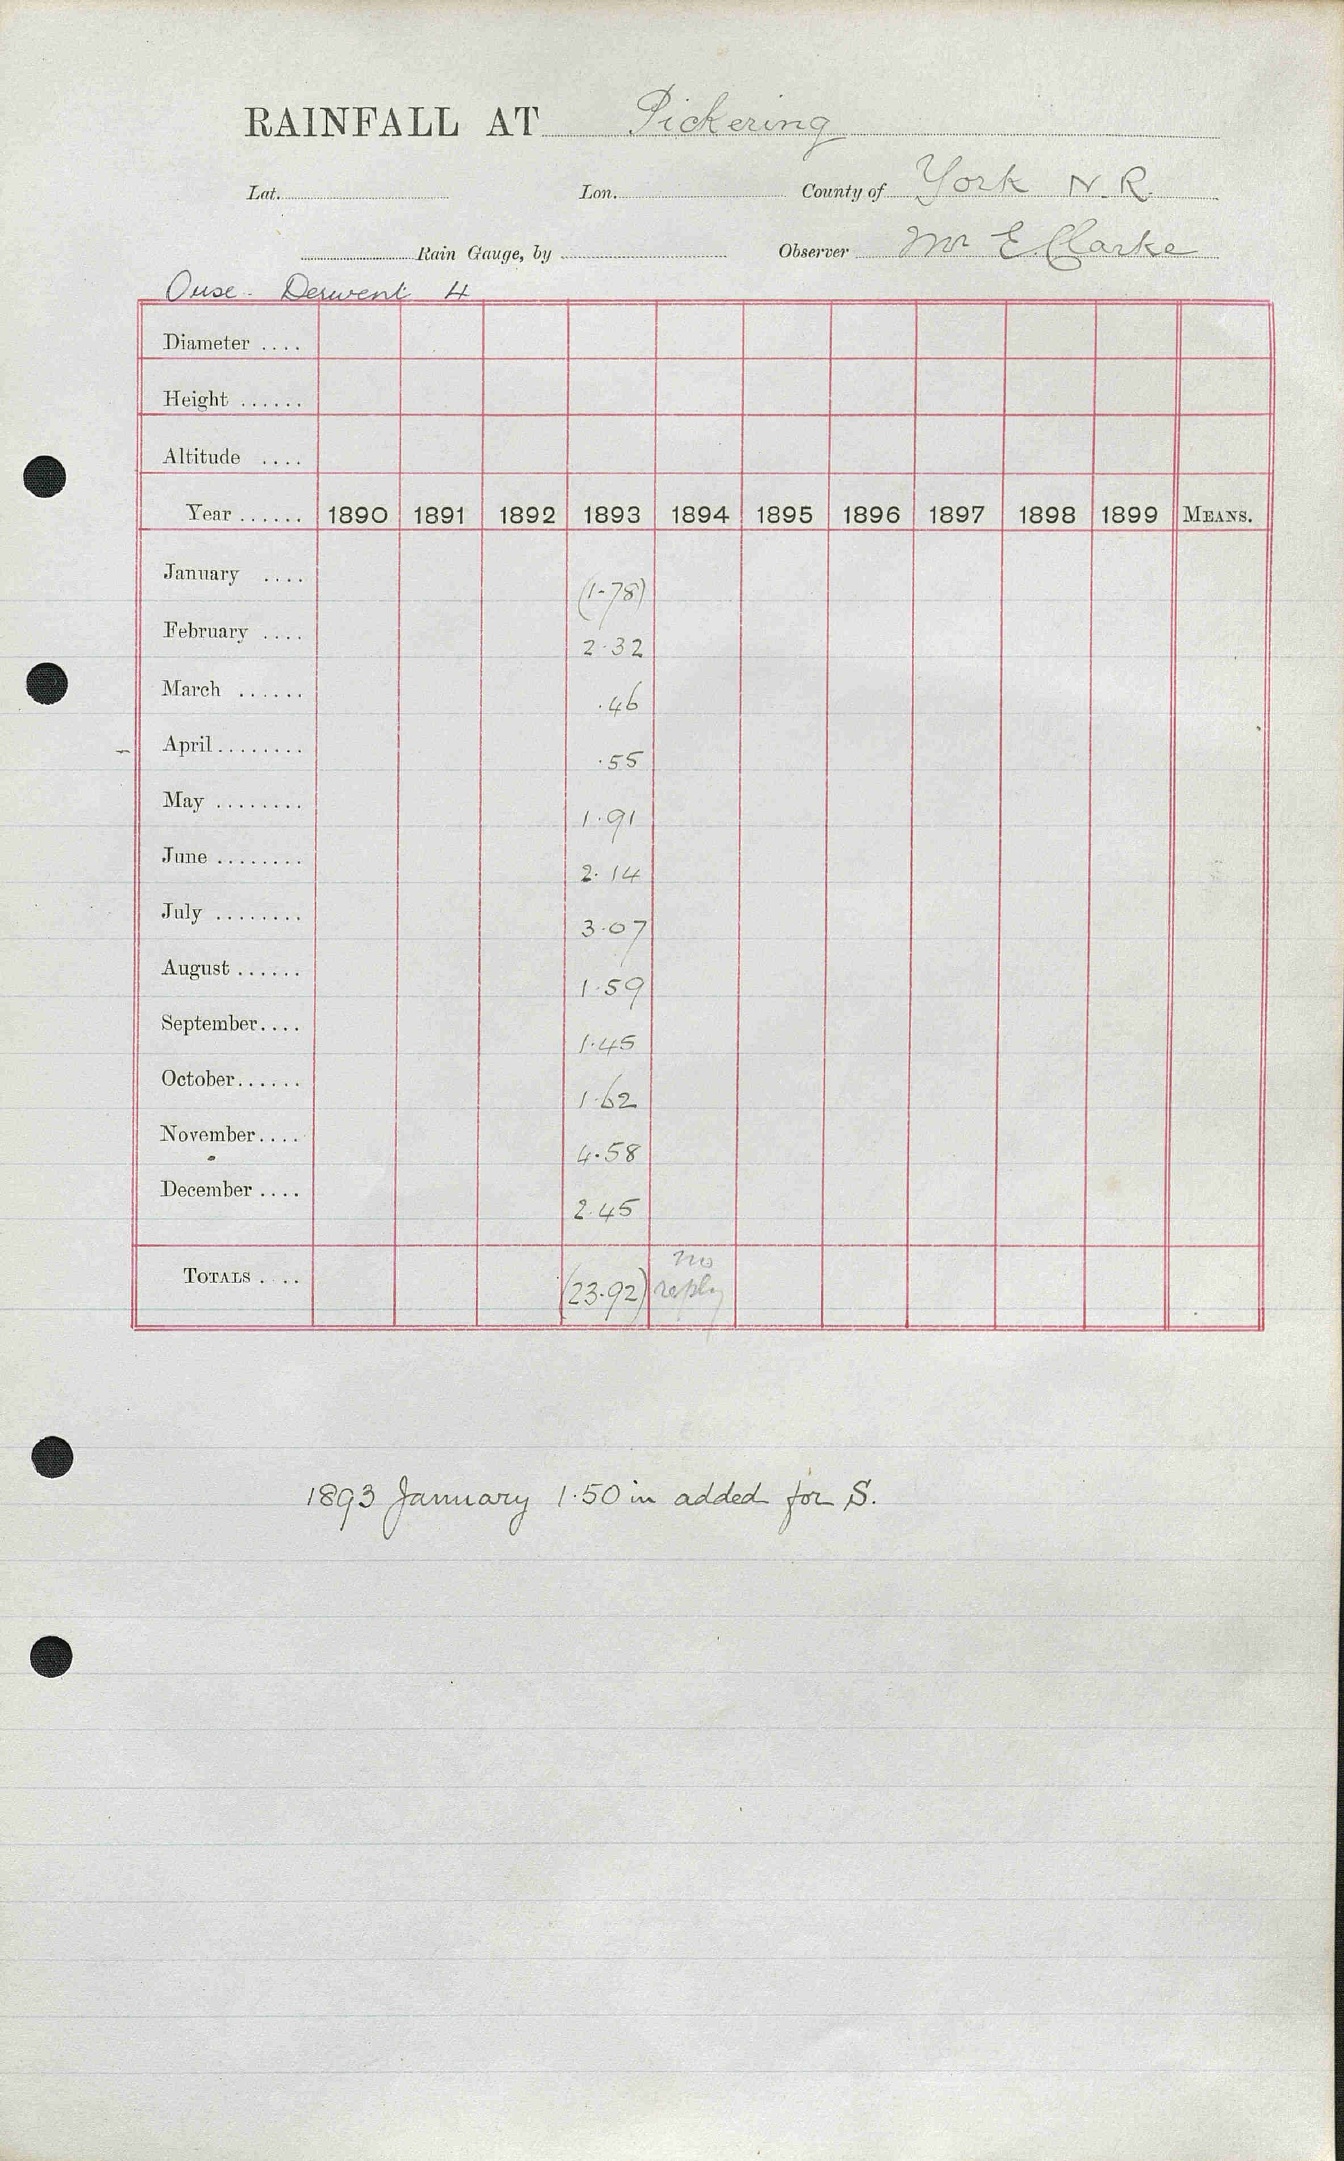 RAINFALL AT Pickering
Lat. Lon. County of York N. R.
Rain Gauge, by Observer Mr E. Clarke
Ouse. Derwent 4
Diameter ....
Height ......
Altitude ....
Year ...... 1890 1891 1892 1893 1894 1895 1896 1897 1898 1899 MEANS.
January .... (1.78)
February .... 2.32
March ...... .46
April ........ .55
May ........ 1.91
June ........ 2.14
July ........ 3.07
August ...... 1.59
September.... 1.45
October...... 1.62
November.... 4.58
December .... 2.45
TOTALS .... (23.92) no reply
1893 January 1.50 in added for S.